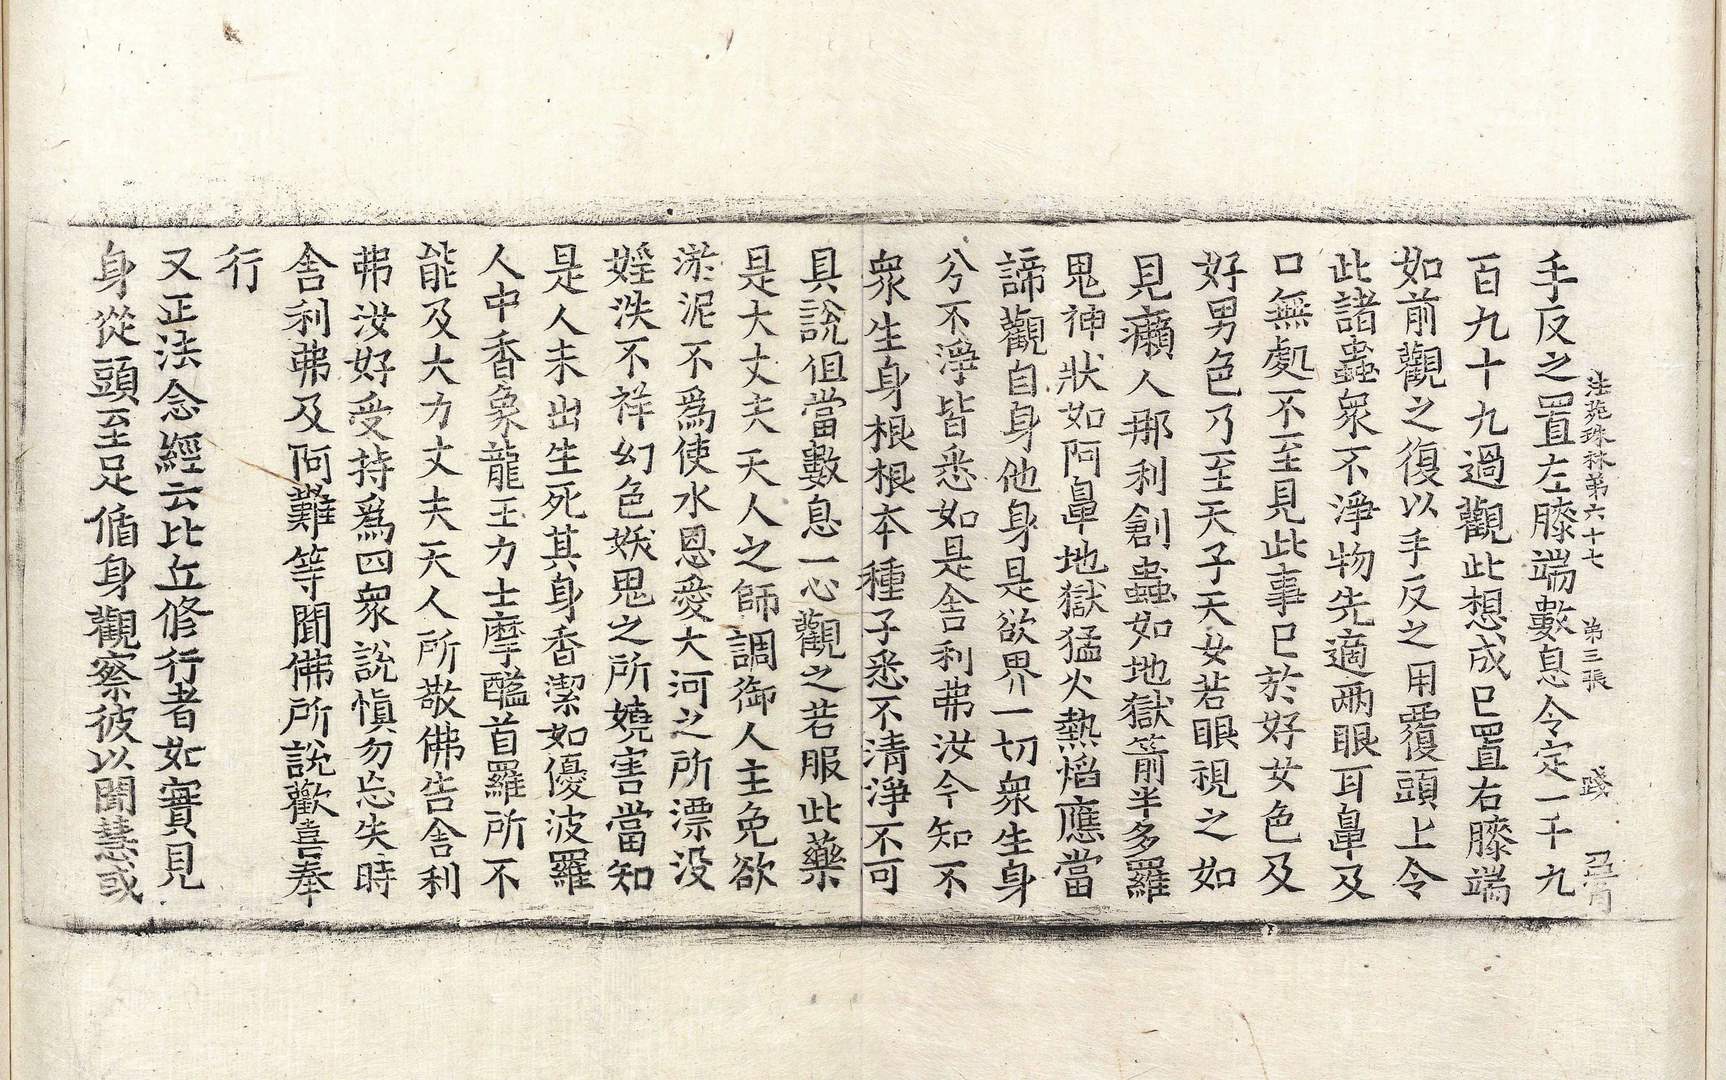 法苑珠林第六十七 第三張 踐
手反之置左膝端數息令定一千九
百九十九過觀此想成已置右膝端
如前觀之復以手反之用覆頭上令
此諸蟲衆不淨物先適兩眼耳鼻及
口無處不至見此事已於好女色及
好男色乃至天子天女若眼視之如
見癩人那利創蟲如地獄箭半多羅
鬼神狀如阿鼻地獄猛火熱焰應當
諦觀自身他身是欲界一切衆生身
分不淨皆悉如是舍利弗汝今知不
衆生身根根本種子悉不清淨不可
具說但當數息一心觀之若服此藥
是大丈夫天人之師調御人主免欲
淤泥不爲使水恩愛大河之所漂没
婬泆不祥幻色妖鬼之所嬈害當知
是人未出生死其身香潔如優波羅
人中香象龍王力士摩醯首羅所不
能及大力丈夫天人所敬佛告舍利
弗汝好受持爲四衆說愼勿忘失時
舍利弗及阿難等聞佛所說歡喜奉
行
又正法念經云比丘修行者如實見
身從頭至足循身觀察彼以聞慧或